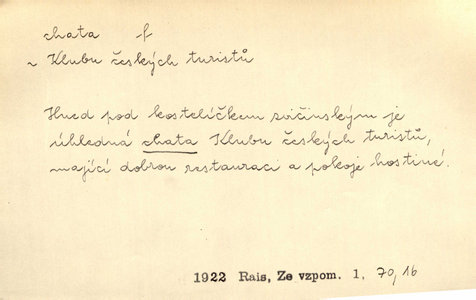 chata f
~ Klubu českých turistů
Hned pod kostelíčkem zvičinským je
úhledná chata Klubu českých turistů,
mající dobrou restauraci a pokoje hostinné.
1922 Rais, Ze vzpom. 1. 70,16